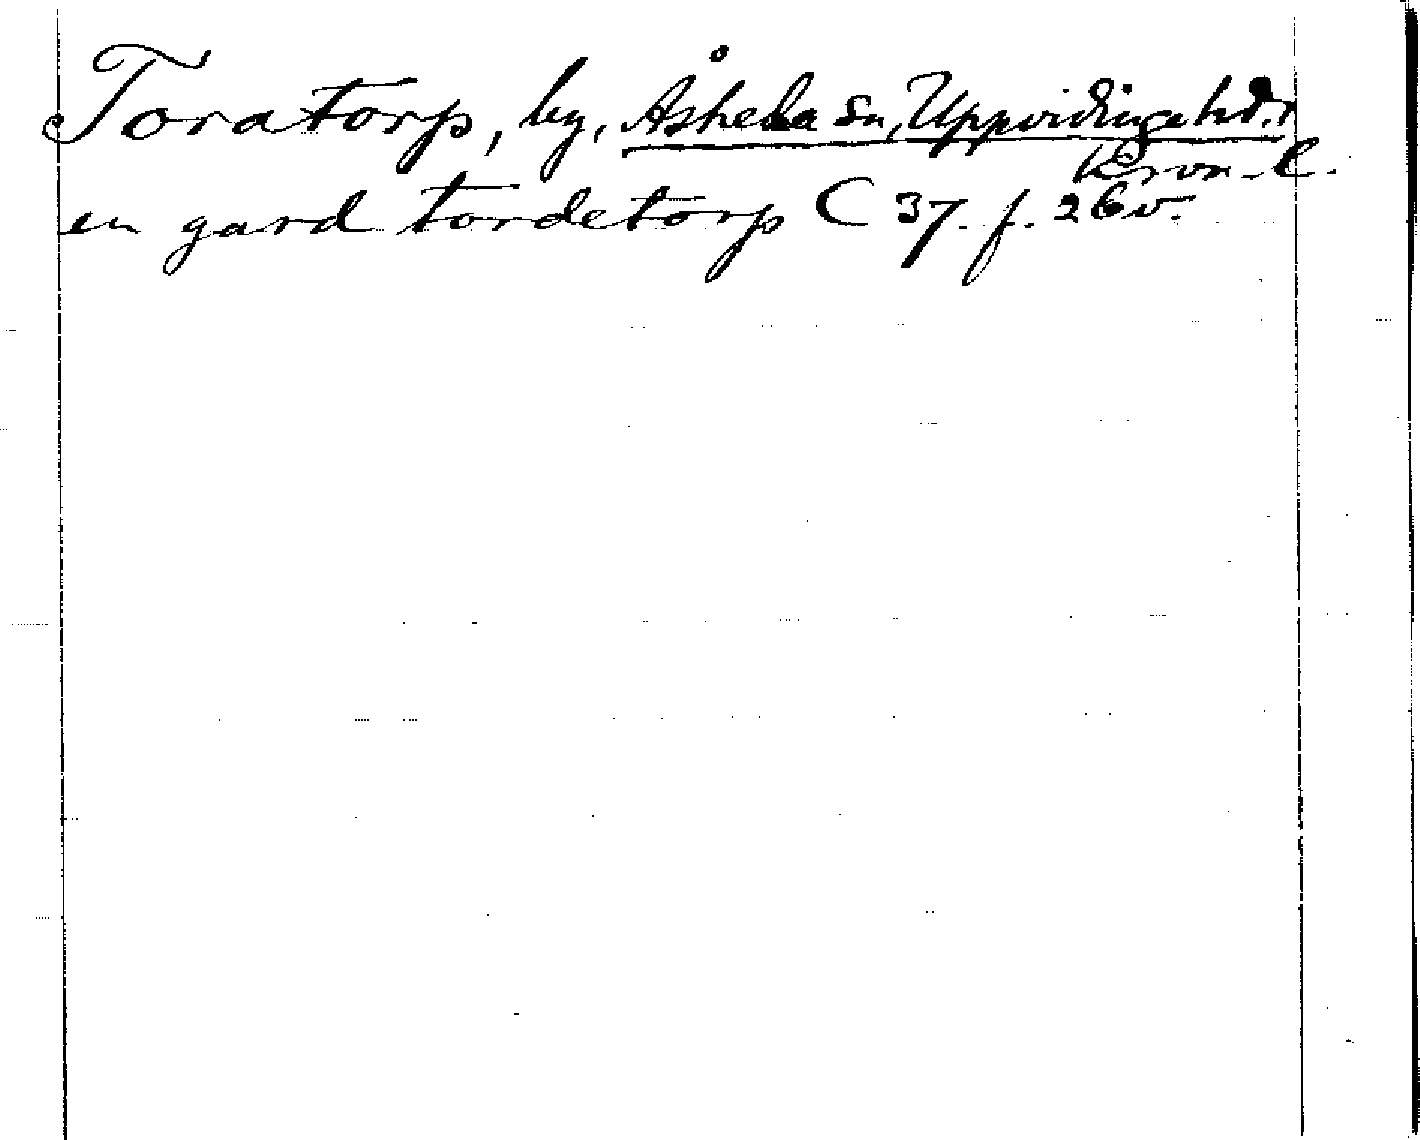 Toratorp, by, Åsheda sn, Uppvidinge hd.,
Kron. l.
en gard tordetorp C 37. f. 26v.